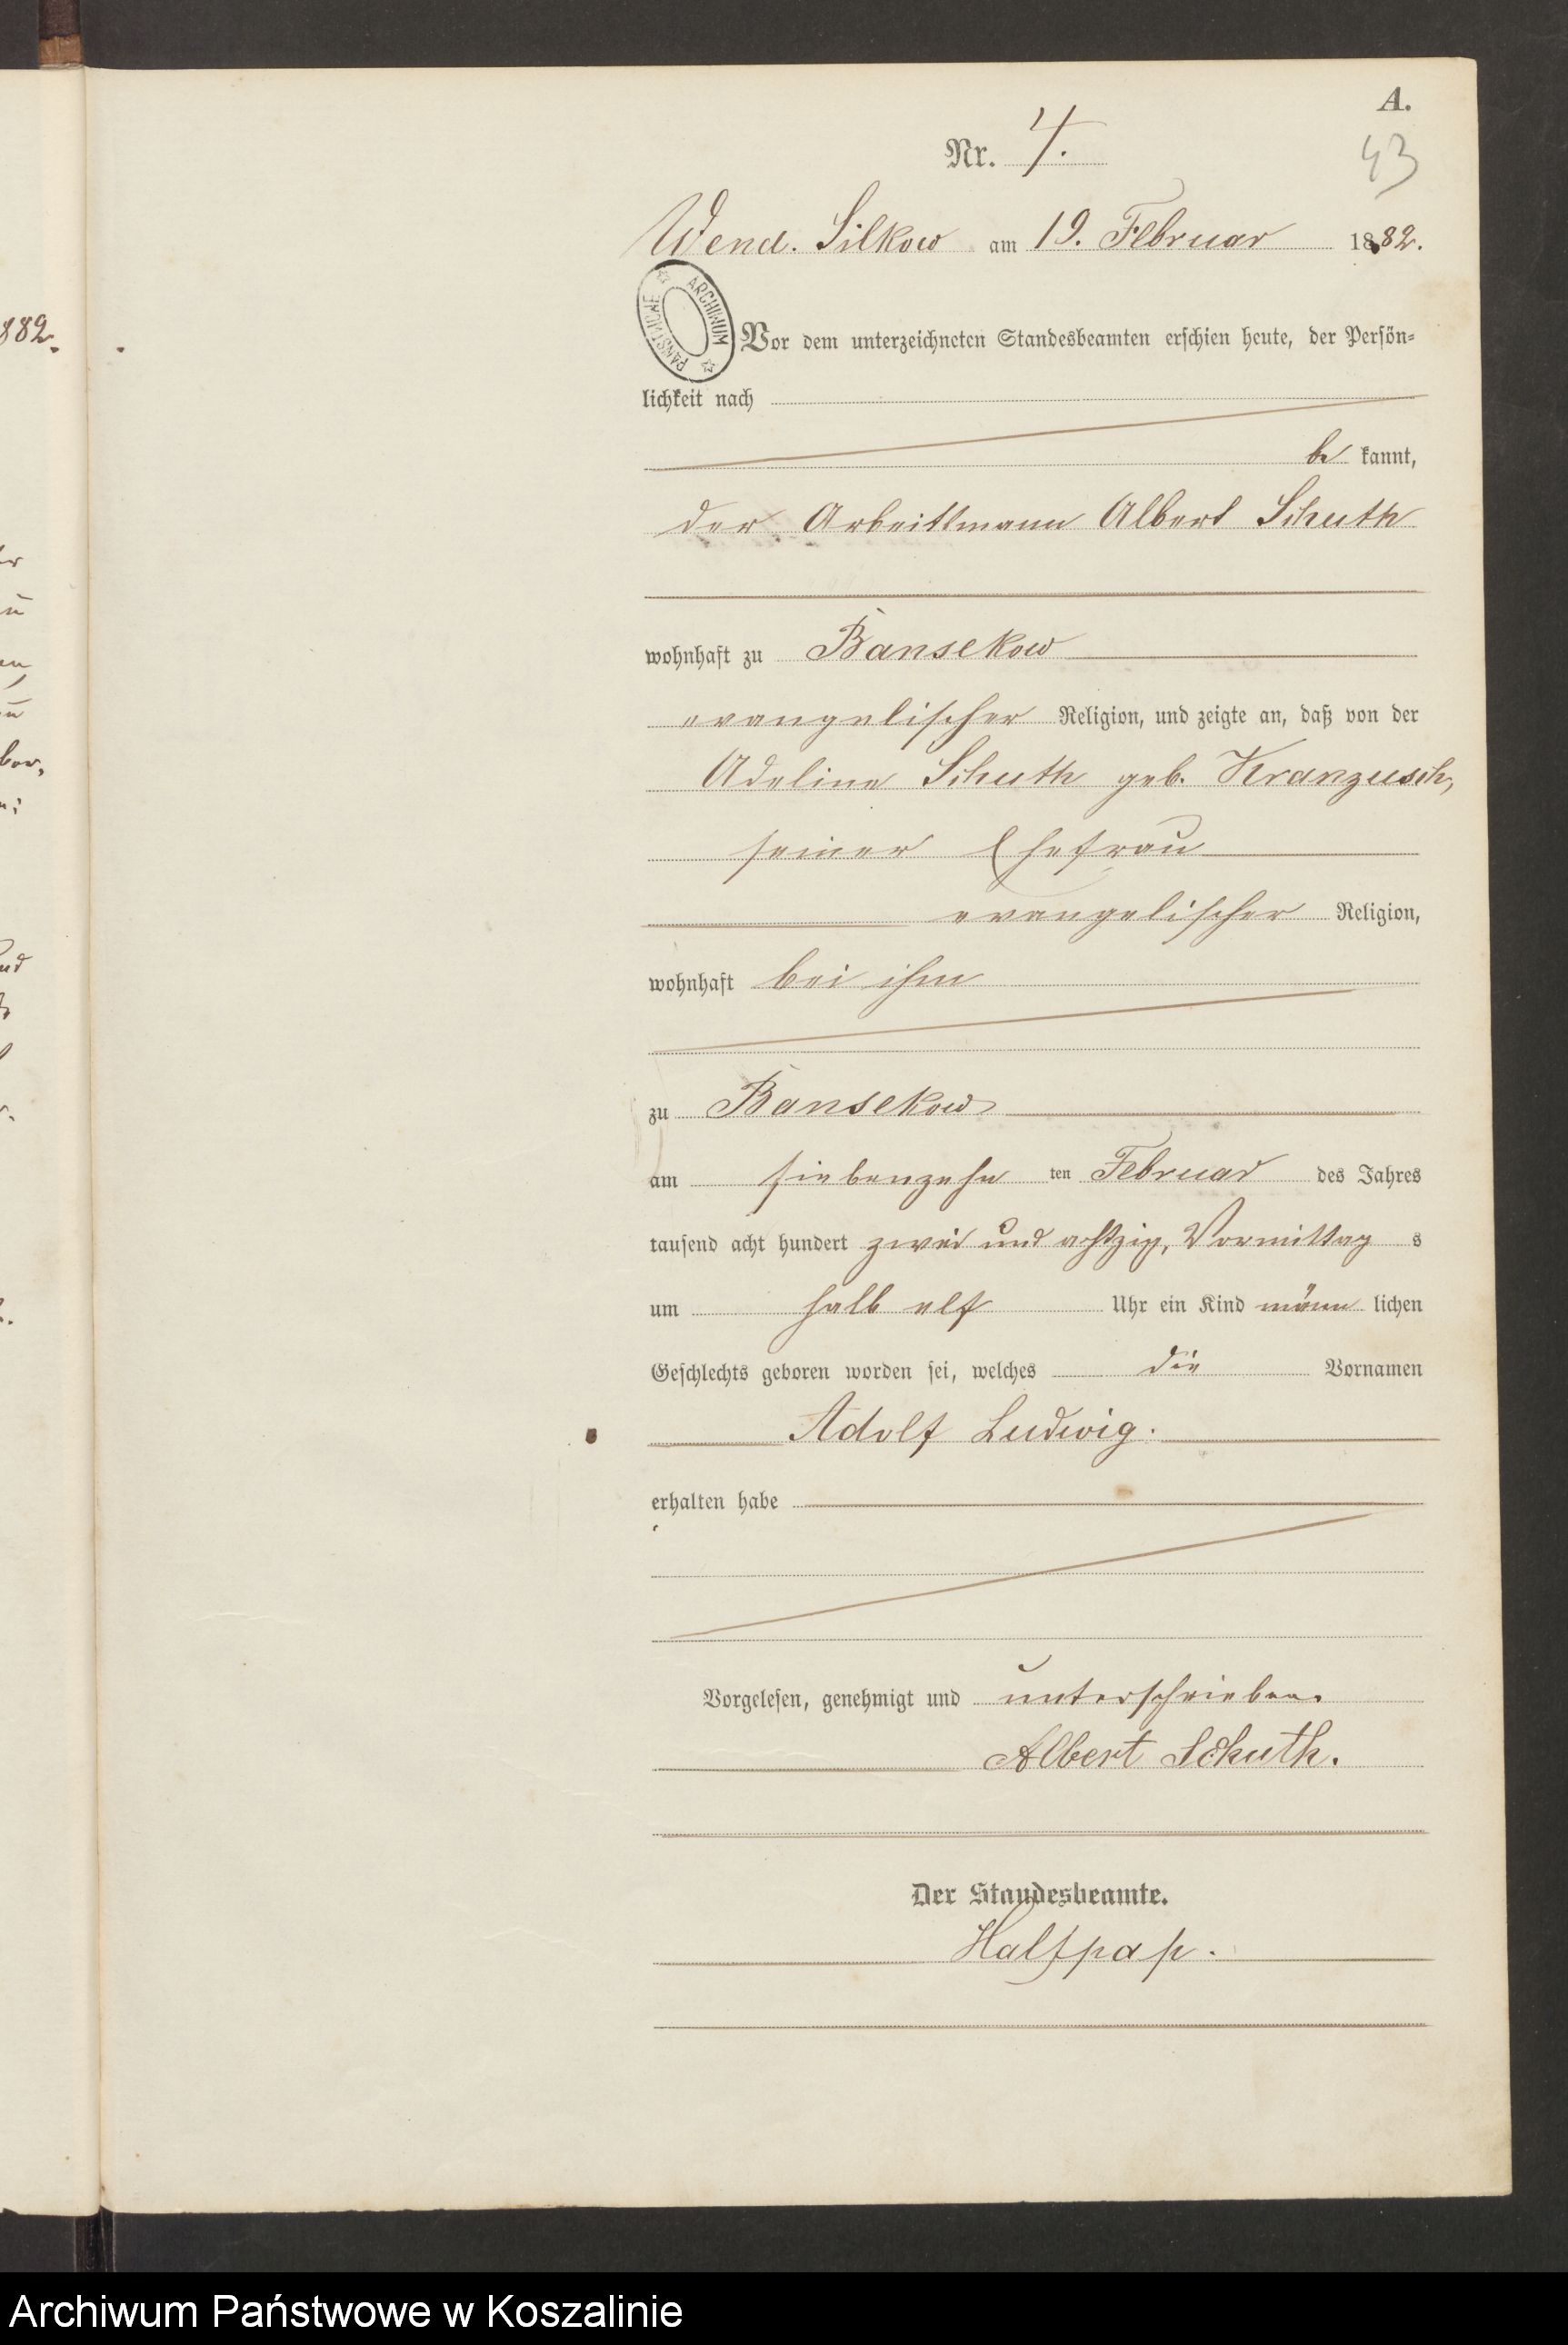 A.
Nr. 4.
43
Wend. Silkow am 19. Februar 1882.
ARCHIWUM PAŃSTWOWE
882.
Vor dem unterzeichneten Standesbeamten erschien heute, der Persön-
lichkeit nach
be kannt,
der Arbeitsmann Albert Schuth
wohnhaft zu Bansekow
evangelischer Religion, und zeigte an, daß von der
Adeline Schuth geb. Kranzusch,
seiner Ehefrau
evangelischer Religion,
wohnhaft bei ihm
zu Bansekow
am siebenzehn ten Februar des Jahres
tausend acht hundert zwei und achtzig, Vormittag s
um halb elf Uhr ein Kind männ lichen
Geschlechts geboren worden sei, welches die Vornamen
Adolf Ludwig.
erhalten habe
Vorgelesen, genehmigt und unterschrieben.
Albert Schuth.
Der Standesbeamte.
Halfpap.
Archiwum Państwowe w Koszalinie